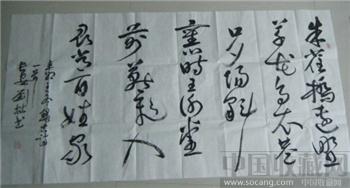 朱雀橋邊野
草花烏衣巷
口夕陽斜
舊時王谢堂
前燕飛入
尋常百姓家
一首
中国收藏网
http://www.socang.com